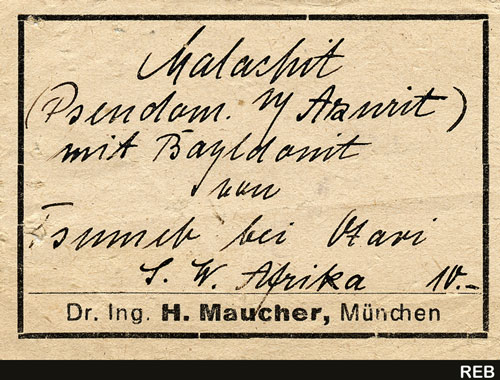 Malachit
(Pseudom. n/ Azurit)
mit Bayldonit
von
Tsumeb bei Otavi
S. W. Afrika 10.-
Dr. Ing. H. Maucher, München
REB